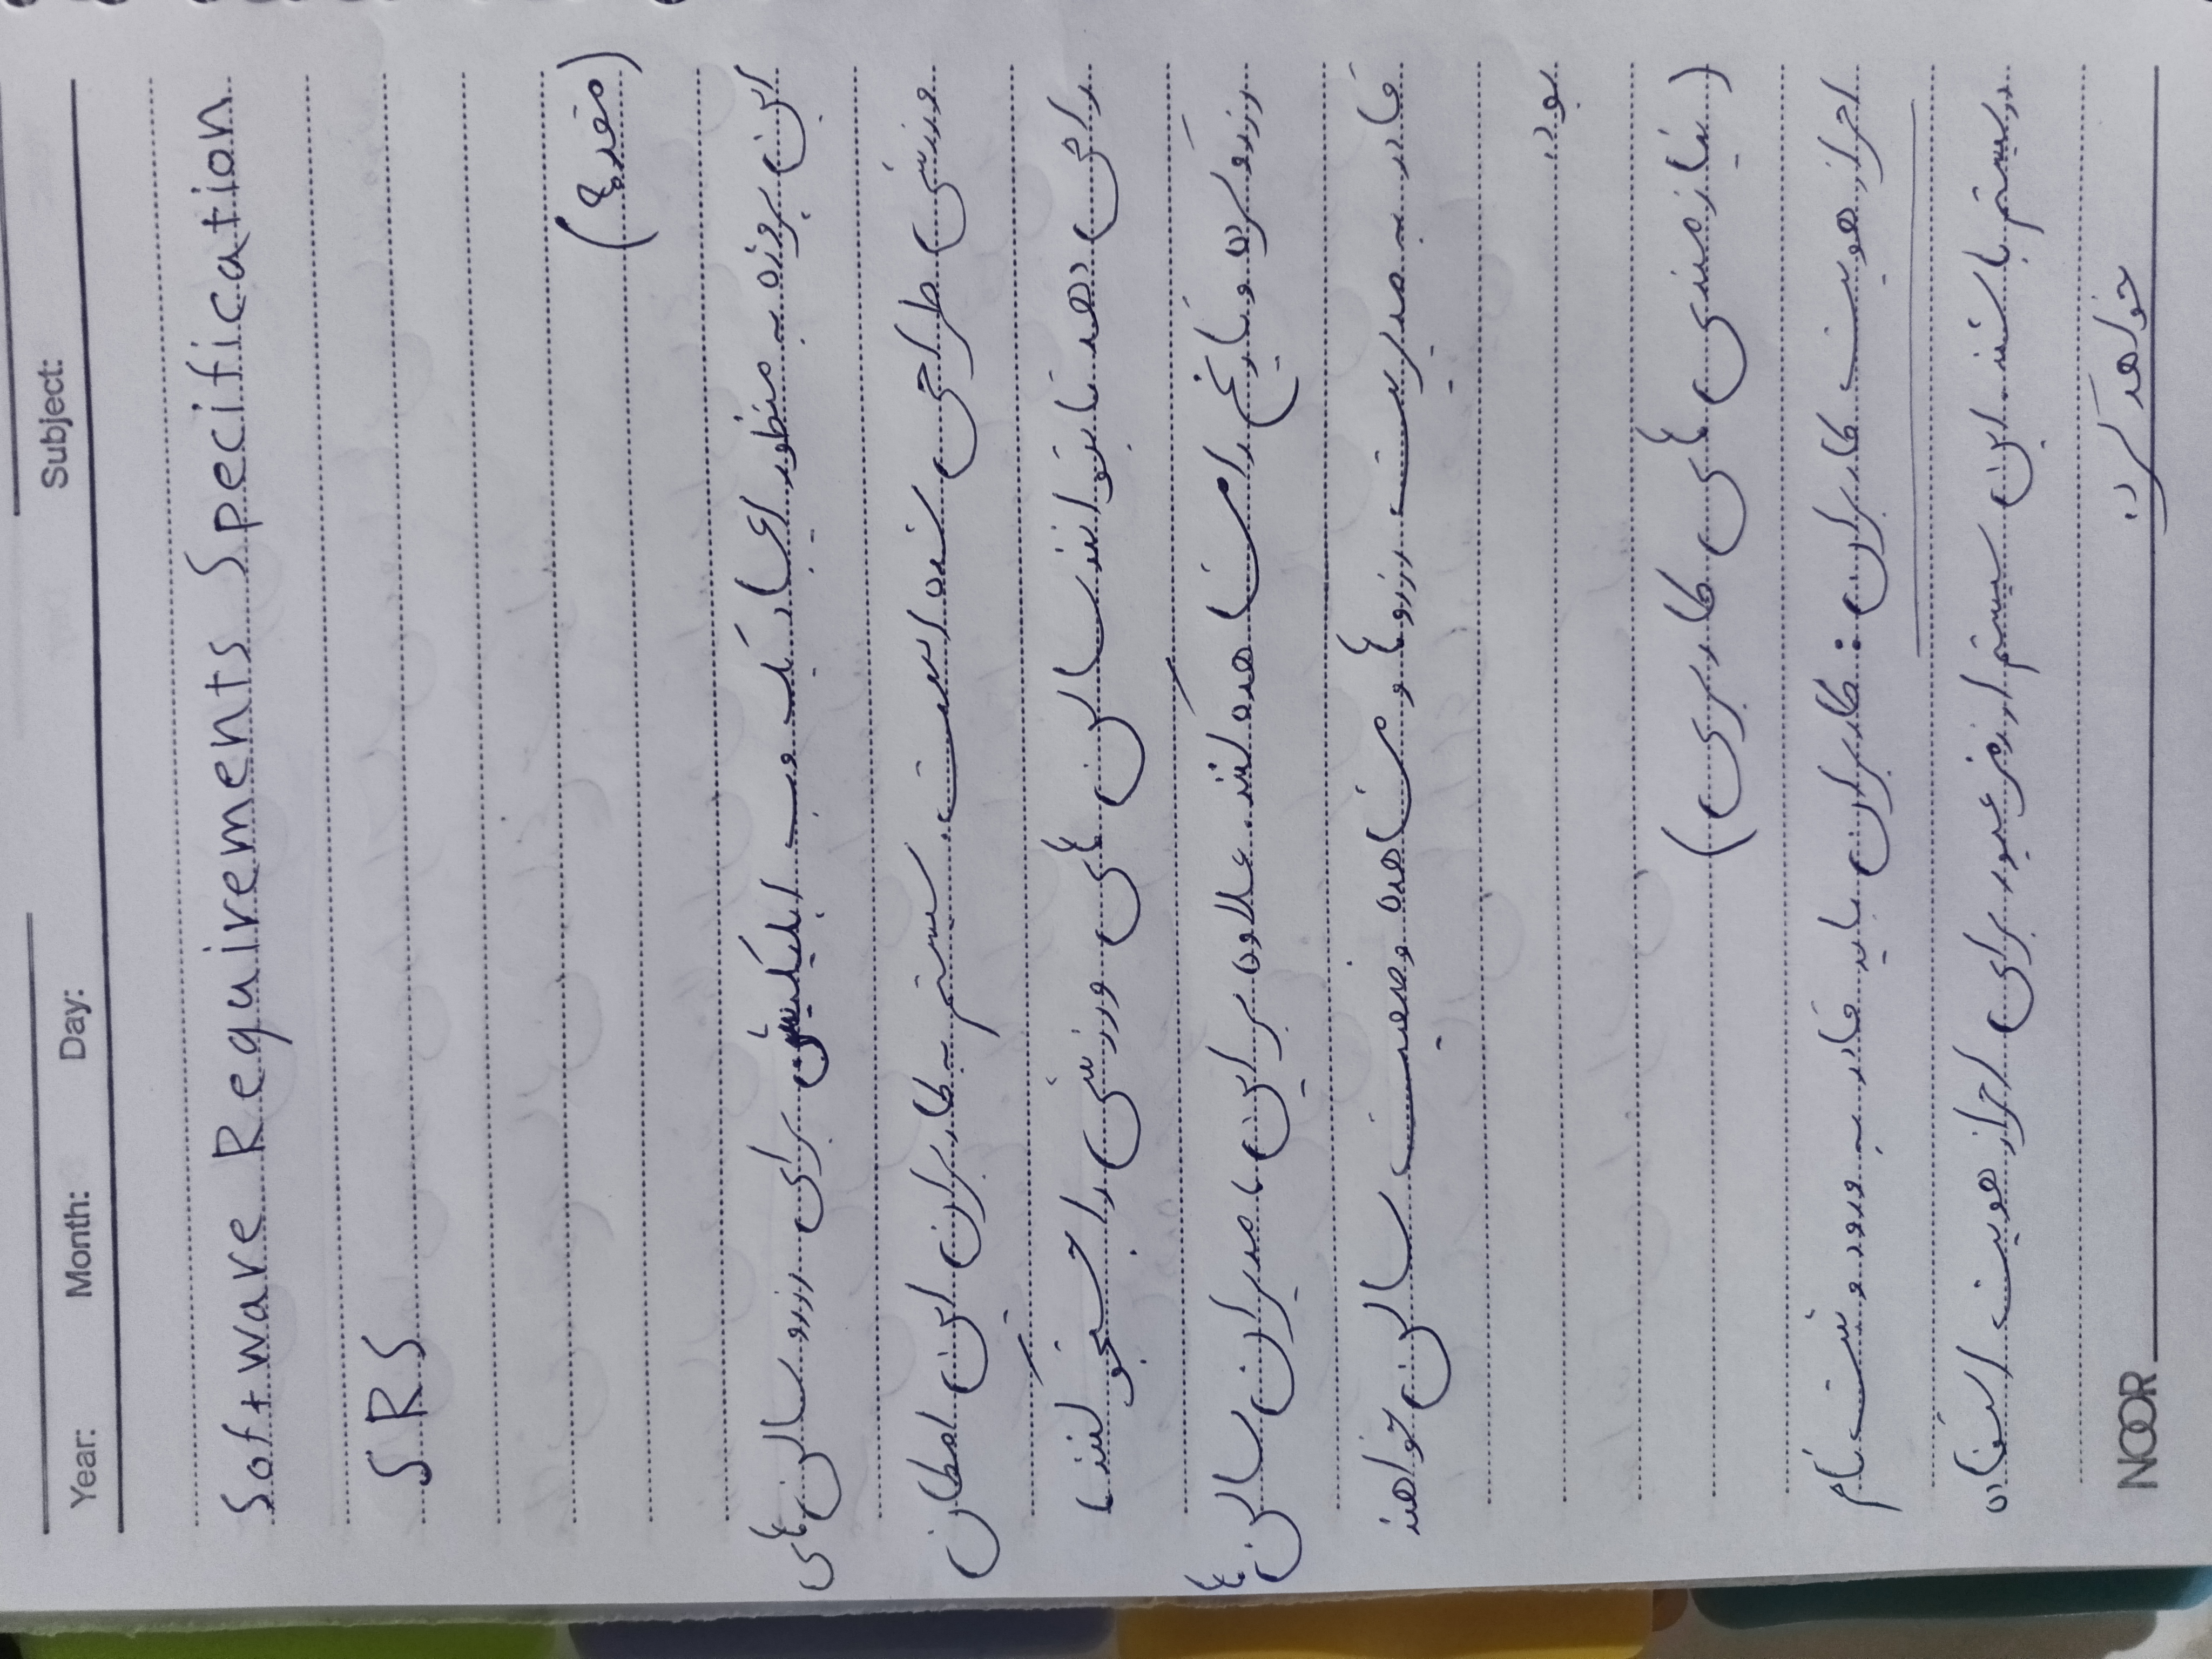 Year: Month: Day: Subject:
Software Requirements Specification
SRS
(مقدمه)
این پروژه به منظور ایجاد یک وب اپلیکیشن برای رزرو سالن‌های
ورزشی طراحی شده است. سیستم به کاربران این امکان
را می دهد تا بتوانند سالن های ورزشی را جستجو کنند،
رزرو کرده و تاریخ را مشاهده کنند. علاوه بر این، مدیران سالن‌ها
قادر به مدیریت رزروها و مشاهده وضعیت سالن خواهند
بود.
(نیازمندی های کاربری)
احراز هویت کاربران: کاربران باید قادر به ورود و ثبت نام
در سیستم باشند. این سیستم از رمز عبور برای احراز هویت استفاده
خواهد کرد.
NOOR